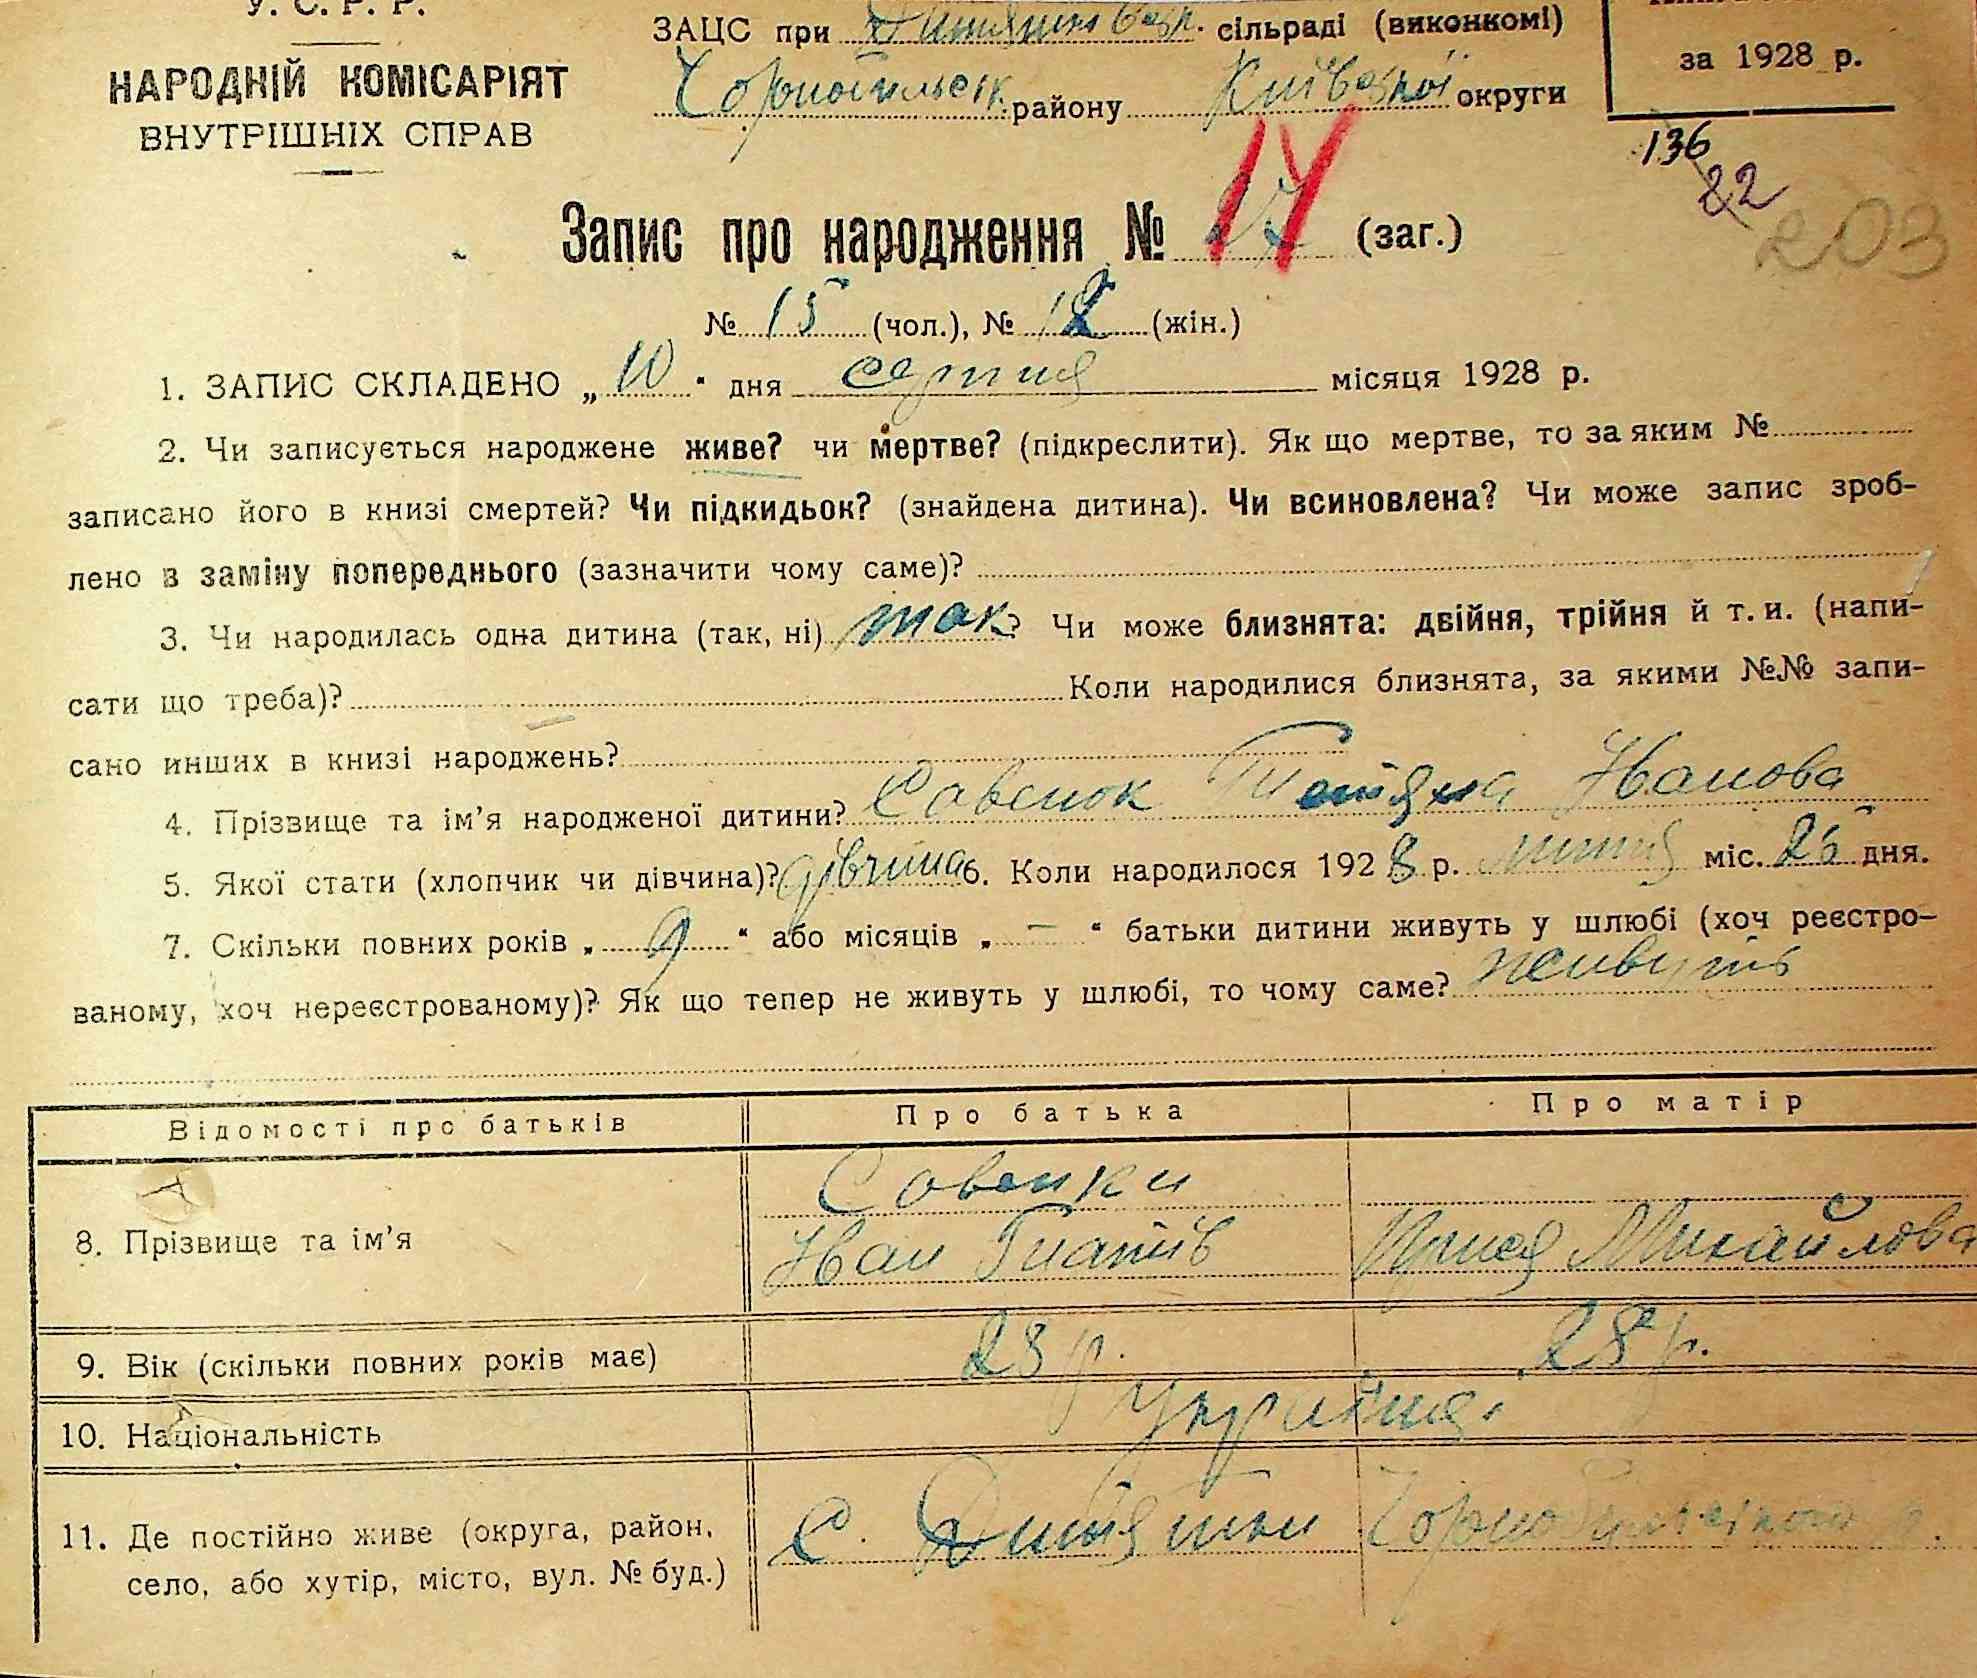 У. С. Р. Р.
НАРОДНІЙ КОМІСАРІЯТ
ВНУТРІШНІХ СПРАВ
ЗАЦС при Дитятківськ. сільраді (виконкомі)
Чорнобильськ. району Київської округи
за 1928 р.
136
22
203
Запис про народження № 14 (заг.)
№ 15 (чол.), № 12 (жін.)
1. ЗАПИС СКЛАДЕНО „10" дня серпня місяця 1928 р.
2. Чи записується народжене живе? чи мертве? (підкреслити). Як що мертве, то за яким №
записано його в книзі смертей? Чи підкидьок? (знайдена дитина). Чи всиновлена? Чи може запис зроб-
лено в заміну попереднього (зазначити чому саме)?
3. Чи народилась одна дитина (так, ні) так? Чи може близнята: двійня, трійня й т. и. (напи-
сати що треба)? Коли народилися близнята, за якими №№ запи-
сано инших в книзі народжень?
4. Прізвище та ім'я народженої дитини? Савенок Тетяна Іванова
5. Якої стати (хлопчик чи дівчина)? дівчина 6. Коли народилося 1928 р. липня міс. 25 дня.
7. Скільки повних років „9" або місяців „–" батьки дитини живуть у шлюбі (хоч реєстро-
ваному, хоч нереєстрованому)? Як що тепер не живуть у шлюбі, то чому саме? живуть
Відомості про батьків Про батька Про матір
8. Прізвище та ім'я Савенки
Іван Гнатів Ярися Михайлова
9. Вік (скільки повних років має) 28 р. 28 р.
10. Національність Українці
11. Де постійно живе (округа, район, село, або хутір, місто, вул. № буд.) с. Дитятки Чорнобильського р.